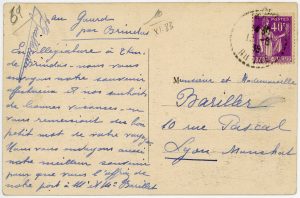 au Guards
par Brindas
En villégiature à Thur.
de Brindas. nous vous
envoyons notre souvenir
et nos souhaits
de bonnes vacances. nous
vous remercions des bon
petit mot de votre voyage
Nous vous envoyons aussi
notre meilleur souvenir
pour que vous l'offriez de
notre part à Mr & Mme Buillet
40c
Monsieur et Mademoiselle
Bariller
10 rue Pascal
Lyon Monchat